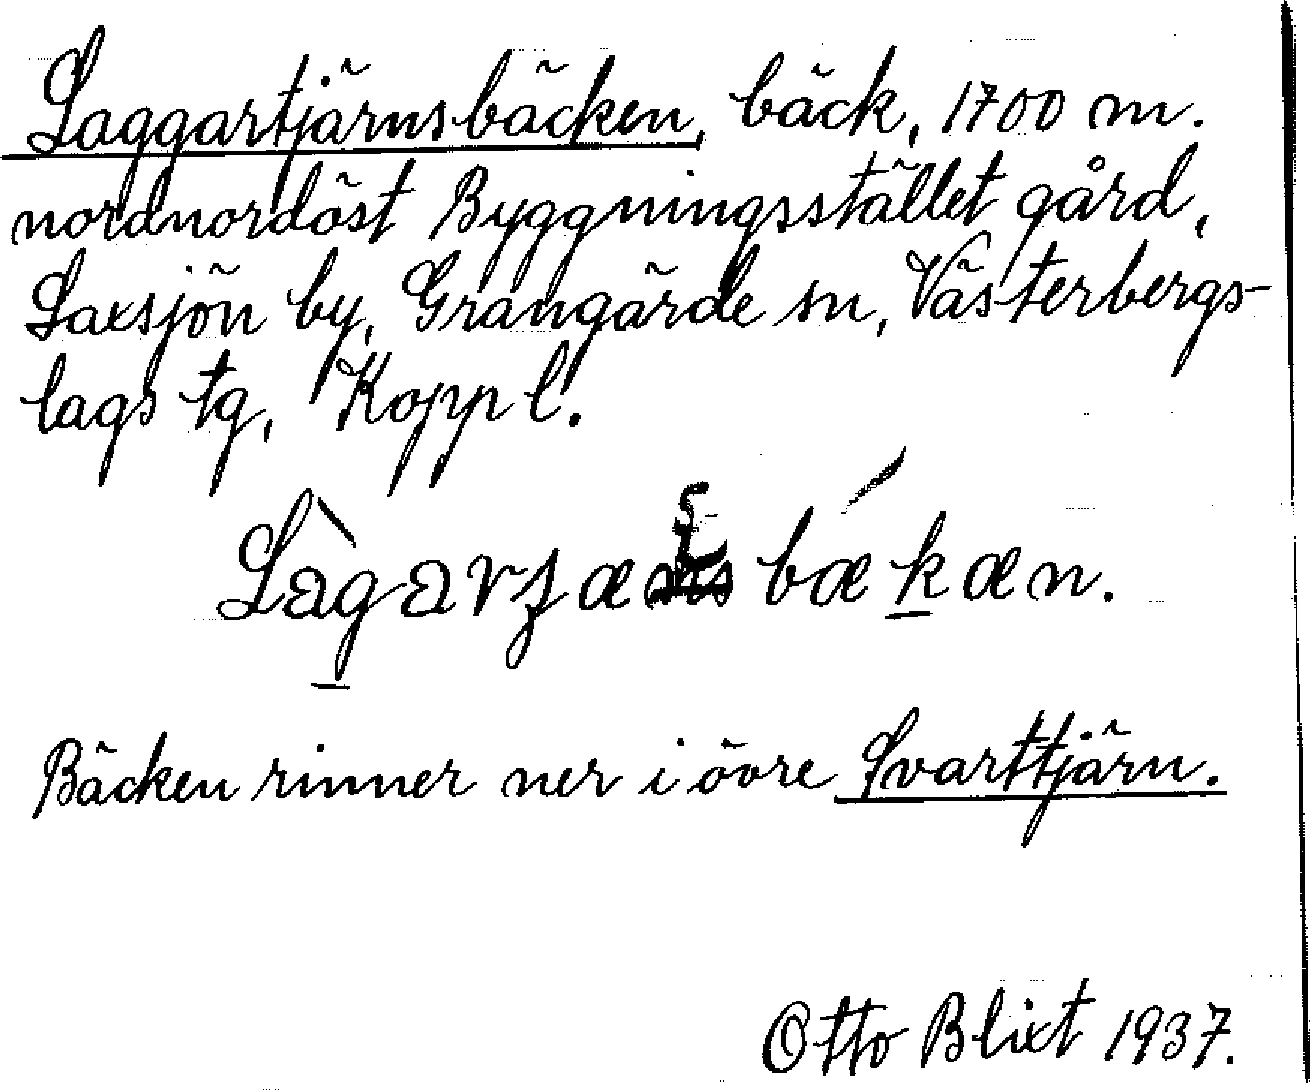 Laggartjärnsbäcken, bäck, 1700 m.
nordnordöst Byggningsstället gård,
Laxsjön by, Grangärde sn, Västerbergs-
lags tg, Kopp l.
bækæn.
Bäcken rinner ner i övre Svarttjärn.
Otto Blixt 1937.